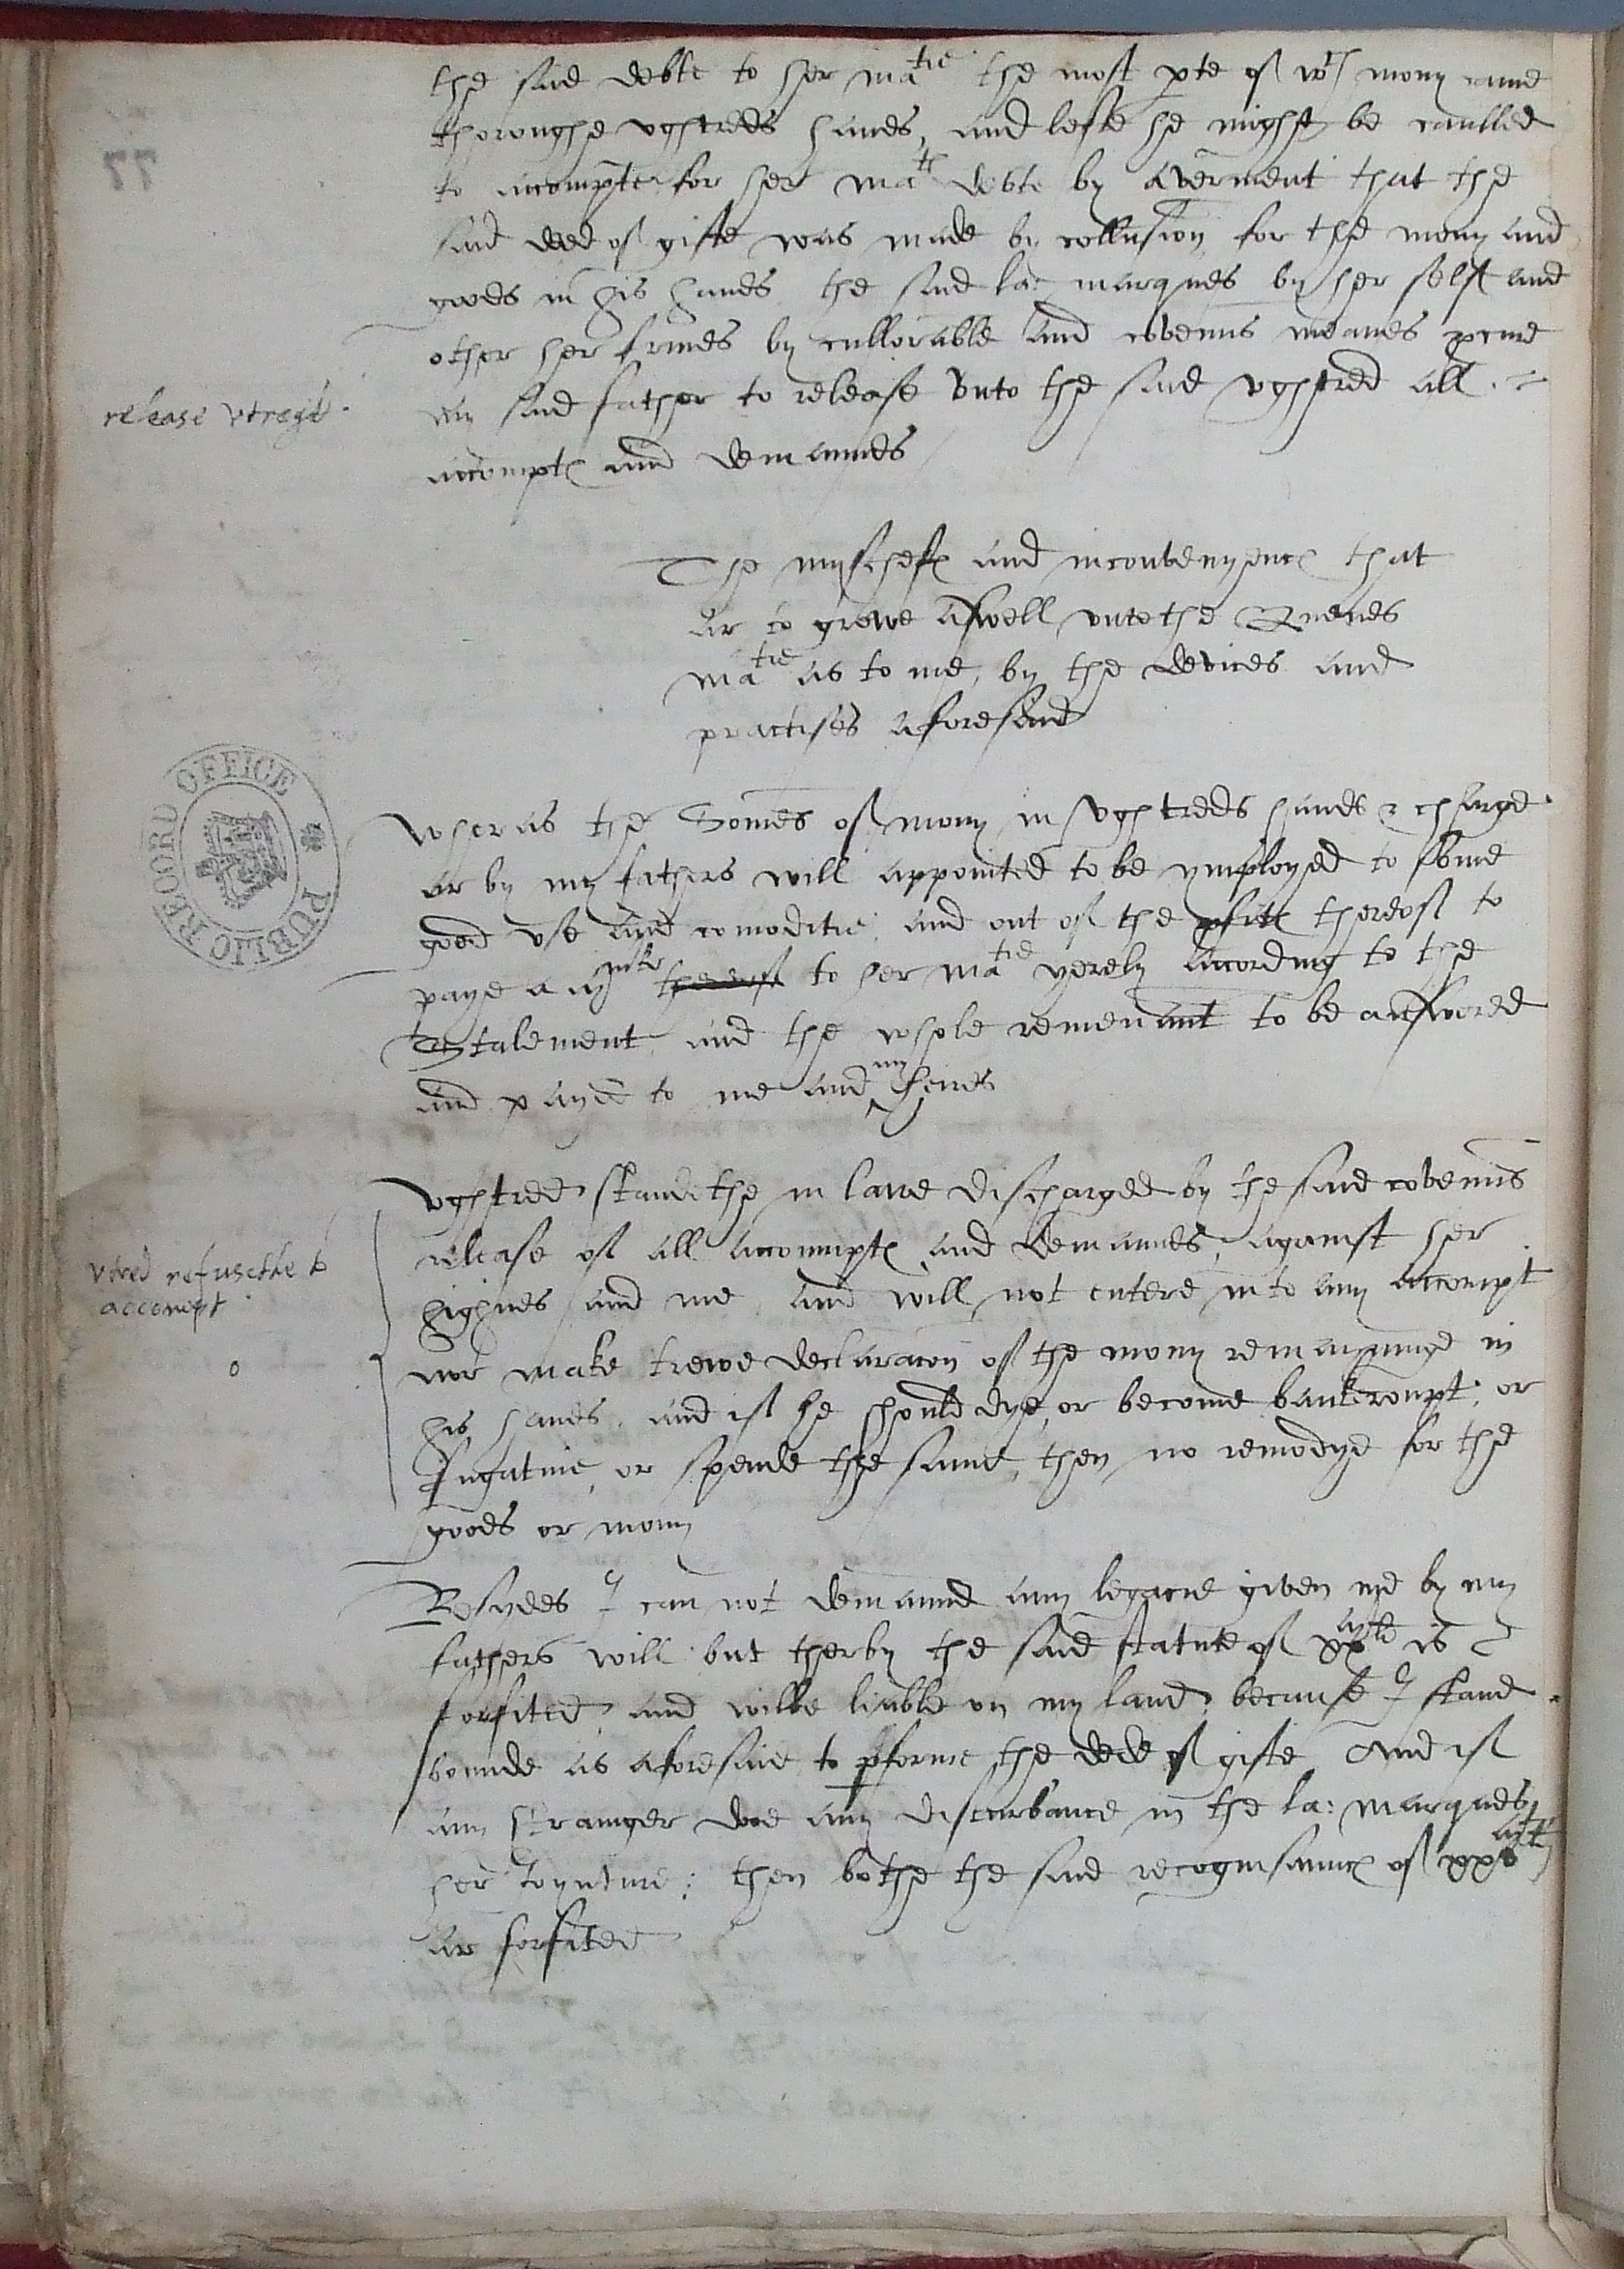 the said debte to her matie the most pte of wch mony came
thoroughe vghtreds handes, and leste he might be caulled
to accompte for her mats debte by averment that the
said deed of gifte was made by collusion, for the mony and
goodes in his handes the said la: marques by her self and
other her frindes by cullorable and covenus meanes pcure
release vtrede.
my said father to release vnto the said vghtred all
accompts and demaundes
The myschefs and inconvenyencs that
ar to growe aswell vnto the Quenes
matie as to me, by the devices and
practises aforesaid
PUBLIC RECORD OFFICE
Wheras the Somes of mony in vghtreds handes & charge
ar by my fathers will appointed to be ymployed to some
good vse and comoditie, and out of the pfits therof to
paye a iust therof to her matie yerely according to the
Estalement, and the whole remenant to be answered
and payed to me and my heires
Vghtred standethe in lawe discharged by the said covenus
release of all accompts and demaundes, against her
vtred refusethe to
accompt
highnes and me, and will not entere into any accompt
nor make trewe declaracon of the mony remayninge in
o
his handes, and if he should dye, or become bankroupt, or
fugatiue, or spende the same, then no remedye for the
goods or mony
Besydes I can not demaund any legacie given me by my
fathers will but therby the said statute of is
forfited, and wilbe liable on my land, because I stand
bounde as aforesaid to pforme the dede of gifte And if
any stranger doe any disturbance in the la: marques
her Ioynture; then bothe the said recognisauncs of
are forfited